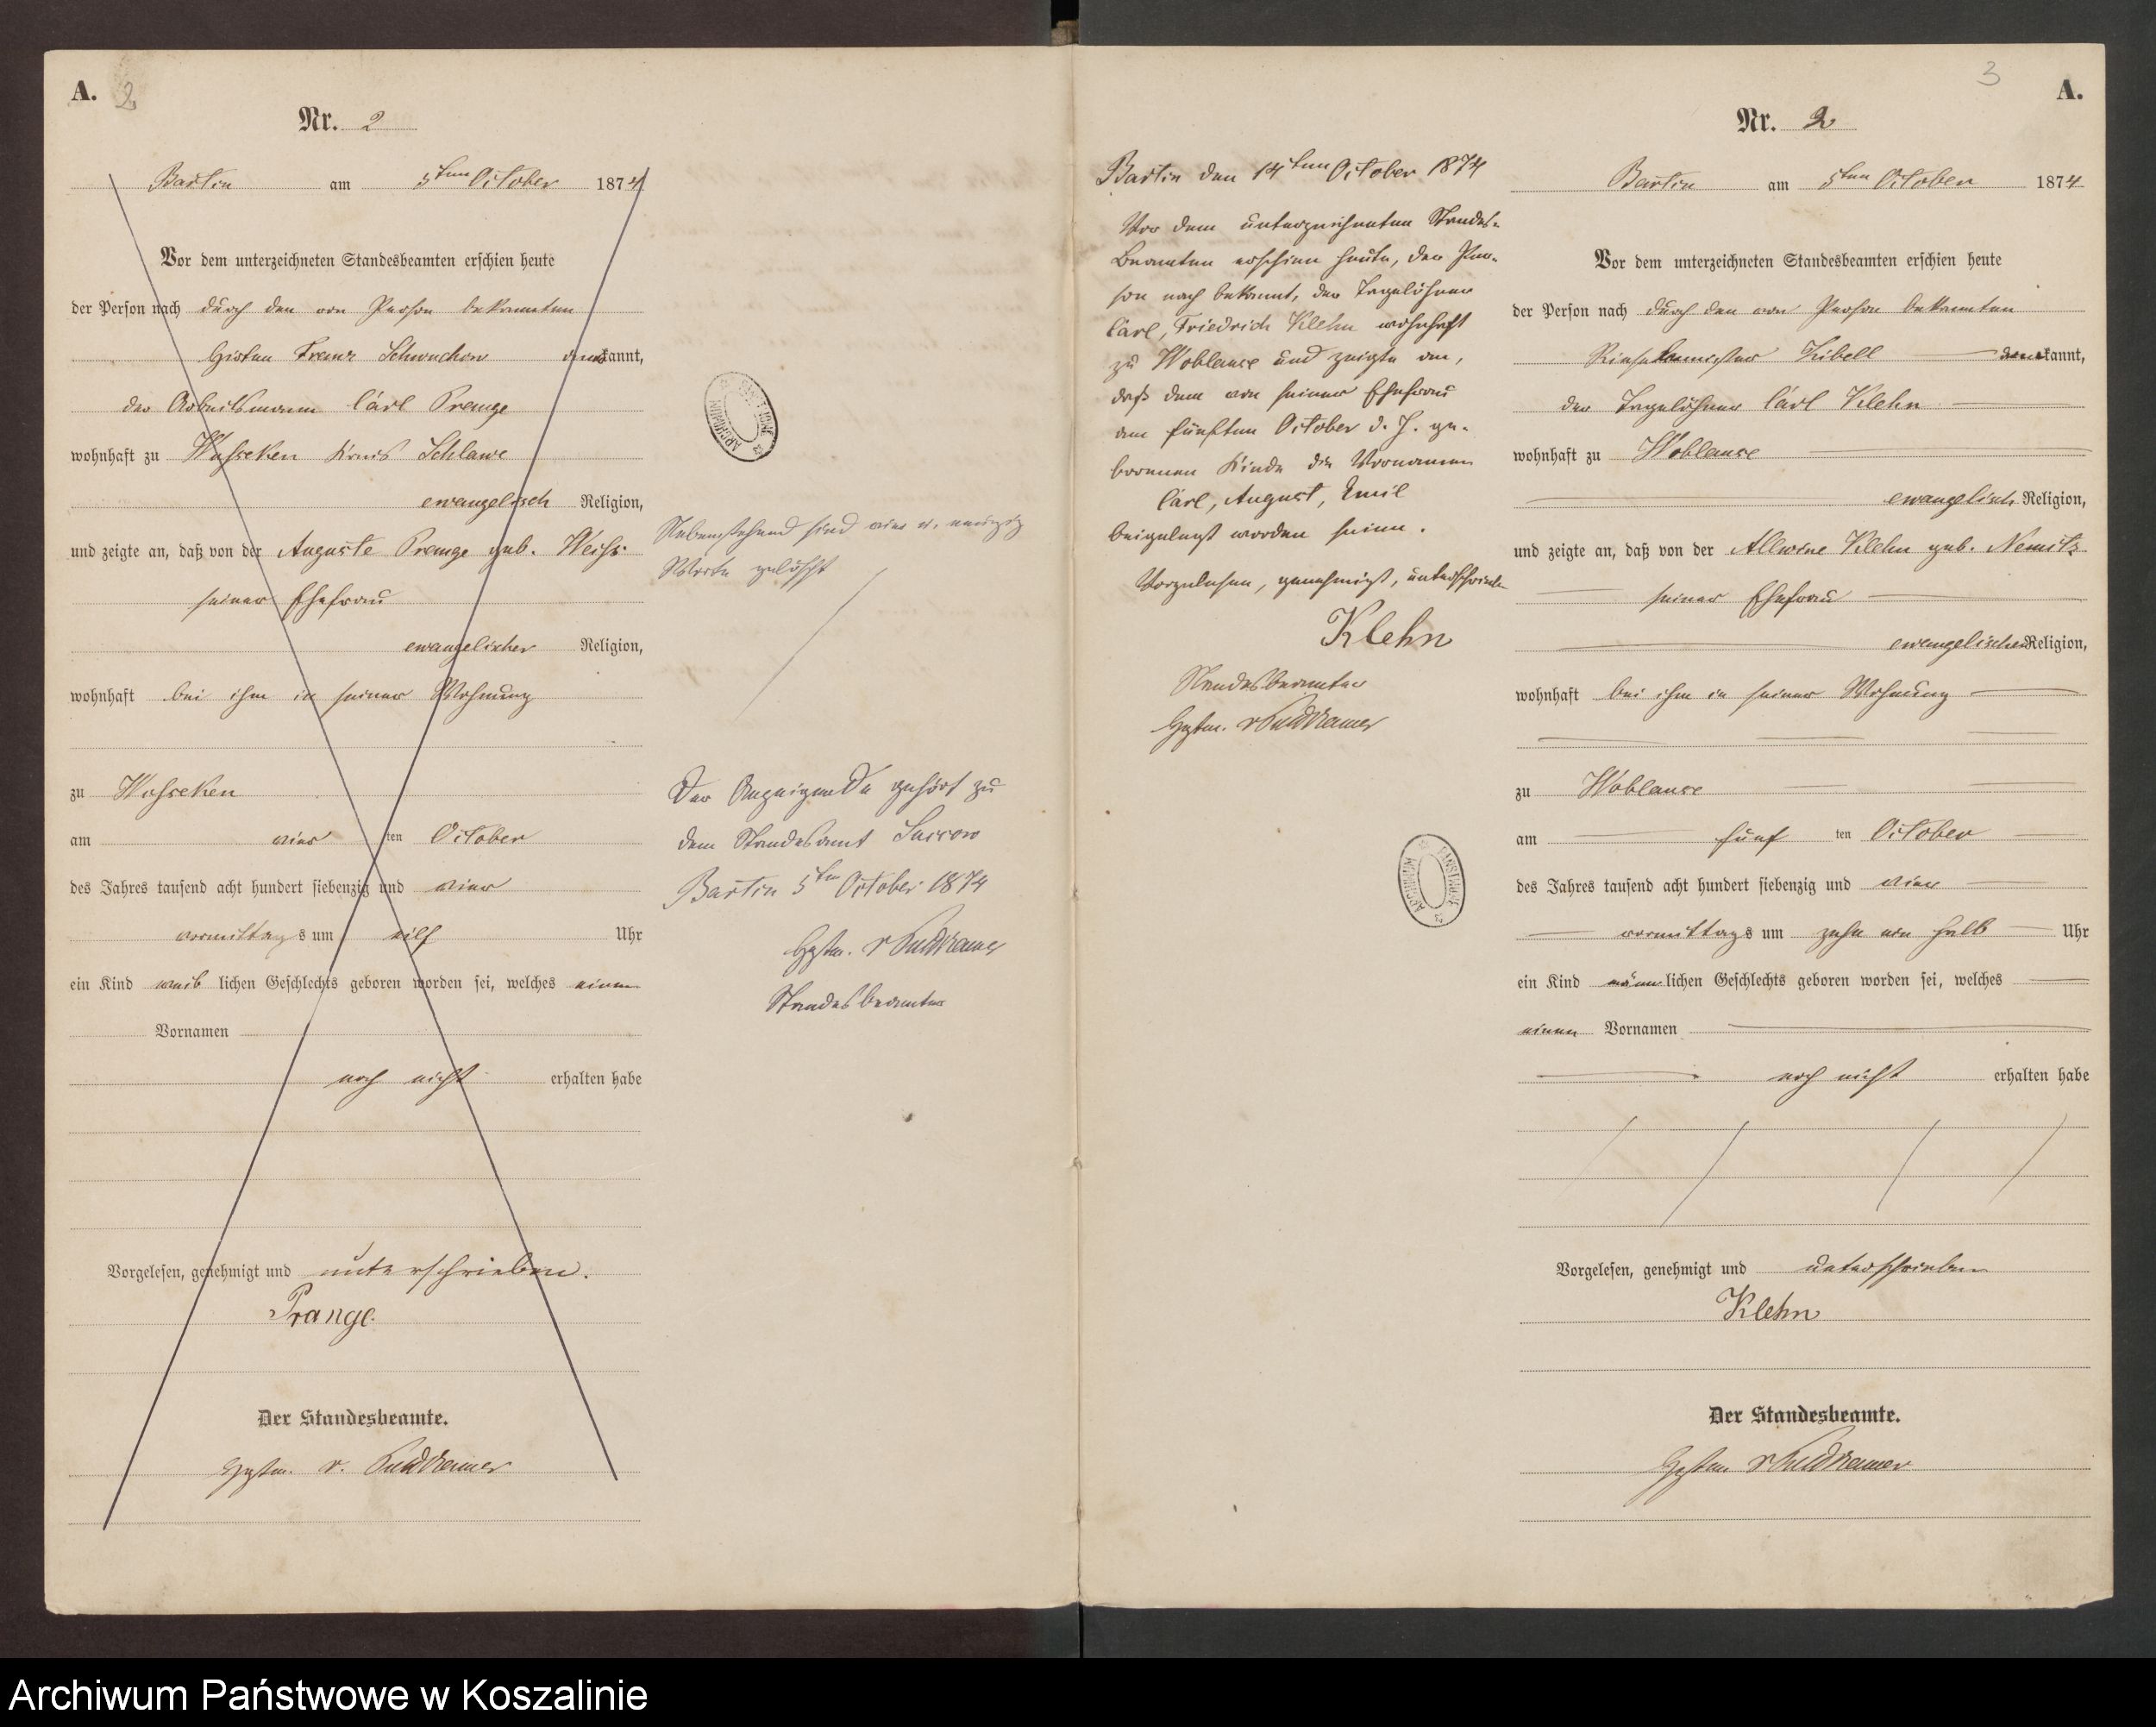 A. 2
Nr. 2
Bartin am 5ten October 1874
Vor dem unterzeichneten Standesbeamten erschien heute
der Person nach durch den von Person bekannten
Franz Schwuchow kannt,
der Arbeitsmann Carl Prange
wohnhaft zu Wusseken Kreis Schlawe
ewangelisch Religion,
und zeigte an, daß von der Auguste Prange geb. Weiss
seiner Ehefrau
ewangelischer Religion,
wohnhaft bei ihm in seiner Wohnung
zu Wusseken
am vier ten October
des Jahres tausend acht hundert siebenzig und vier
vormittags um elf Uhr
ein Kind weib lichen Geschlechts geboren worden sei, welches einen
Vornamen
noch nicht erhalten habe
Vorgelesen, genehmigt und unterschrieben.
Prange
Der Standesbeamte.
v. Puttkamer
Nebenstehend sind vier u. neunzig
Worte gelöscht
Der Anzeigende gehört zu
dem Standesamt
Bartin 5ten October 1874
v Puttkamer
Standesbeamter
Bartin den 14ten October 1874
Vor dem unterzeichneten Standes-
Beamten erschien heute, der Per-
son nach bekannt, der Tagelöhner
Carl, Friedrich Klehn wohnhaft
zu Woblanse und zeigte an,
daß dem von seiner Ehefrau
am fünften October d. J. ge-
borenen Kinde die Vornamen
Carl, August, Emil
beigelegt worden seien.
Vorgelesen, genehmigt, unterschrieben
Klehn
Standesbeamter
v Puttkamer
3 A.
Nr. 2
Bartin am 5ten October 1874
Vor dem unterzeichneten Standesbeamten erschien heute
der Person nach durch den von Person bekannten
kannt,
der Tagelöhner Carl Klehn
wohnhaft zu Woblanse
ewangelisch Religion,
und zeigte an, daß von der Allwine Klehn geb. Nemitz
seiner Ehefrau
ewangelischer Religion,
wohnhaft bei ihm in seiner Wohnung
zu Woblanse
am fünf ten October
des Jahres tausend acht hundert siebenzig und vier
vormittags um zehn ein halb Uhr
ein Kind männ lichen Geschlechts geboren worden sei, welches
einen Vornamen
noch nicht erhalten habe
Vorgelesen, genehmigt und unterschrieben
Klehn
Der Standesbeamte.
v Puttkamer
Archiwum Państwowe w Koszalinie